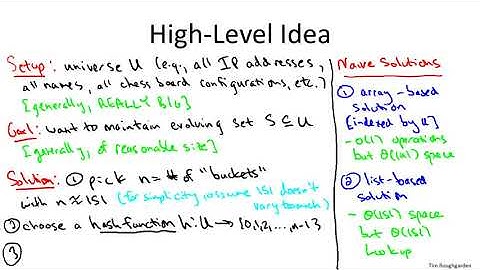 High-Level Idea
Setup: universe U (e.g., all IP addresses,
all names, all chess board configurations, etc.)
[generally, REALLY BIG]
Goal: want to maintain evolving set S ⊆ U
[generally, of reasonable size]
Solution: ① pick n = # of "buckets"
with n ≈ |S| (for simplicity, assume |S| doesn't
vary too much)
② choose a hash function h: U → {0,1,2,...,n-1}
③
Naive Solutions
① array-based
solution
[indexed by U]
- O(1) operations
but Θ(|U|) space
② list-based
solution
- Θ(|S|) space
but Θ(|S|)
Lookup
Tim Roughgarden